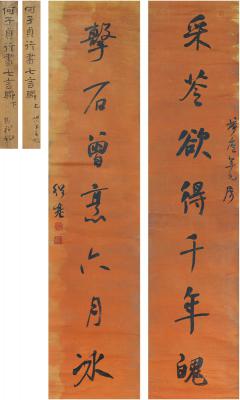 采苓欲得千年魄
擊石曾烹六月冰
何子貞行書七言聯 上
何子貞行書七言聯 下